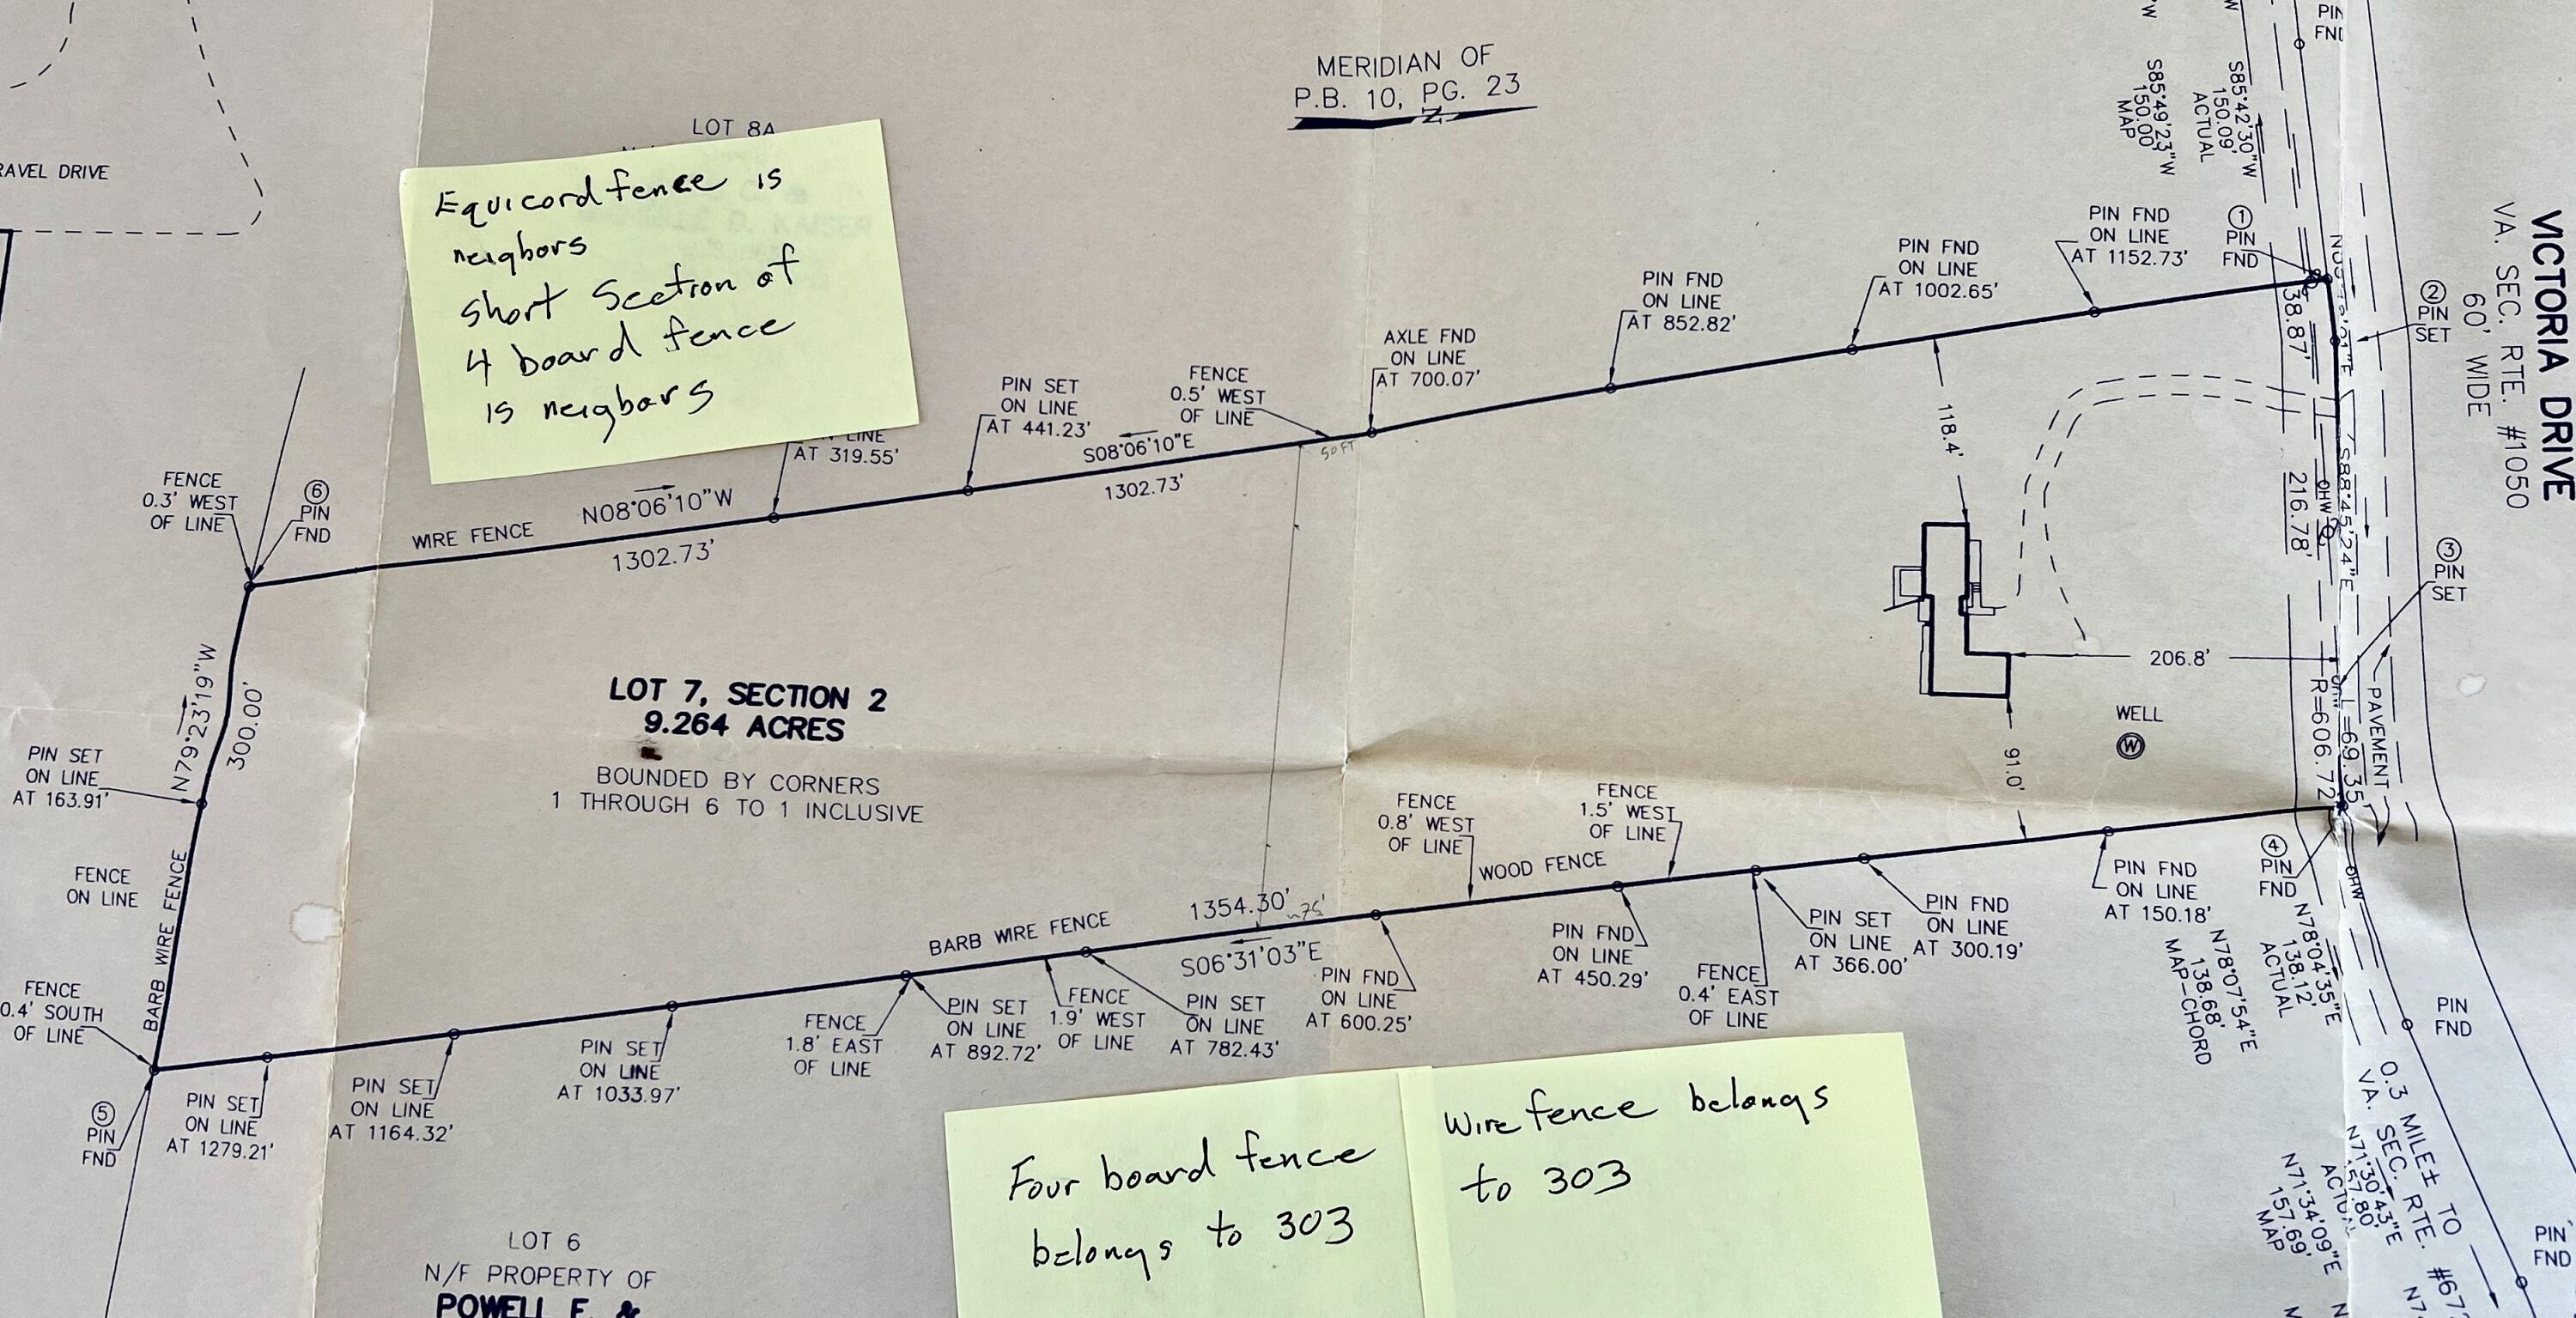 MERIDIAN OF
P.B. 10, PG. 23
N
LOT 8A
RAVEL DRIVE
Equicord fence is
neigbors
short Section of
4 board fence
is neigbors
FENCE
0.3' WEST
OF LINE
6
PIN
FND
WIRE FENCE
N08°06'10"W
1302.73'
LINE
AT 319.55'
PIN SET
ON LINE
AT 441.23'
FENCE
0.5' WEST
OF LINE
S08°06'10"E
1302.73'
50 FT
AXLE FND
ON LINE
AT 700.07'
PIN FND
ON LINE
AT 852.82'
PIN FND
ON LINE
AT 1002.65'
PIN FND
ON LINE
AT 1152.73'
1
PIN
FND
S85°49'23"W
150.00'
MAP
S85°42'30"W
150.09'
ACTUAL
PIN
FND
38.87'
2
PIN
SET
VICTORIA DRIVE
VA. SEC. RTE. #1050
60' WIDE
118.4'
216.78'
OHW
S88°45'24"E
3
PIN
SET
206.8'
R=606.72'
L=69.35'
PAVEMENT
WELL
W
91.0'
N79°23'19"W
300.00'
LOT 7, SECTION 2
9.264 ACRES
BOUNDED BY CORNERS
1 THROUGH 6 TO 1 INCLUSIVE
PIN SET
ON LINE
AT 163.91'
FENCE
ON LINE
BARB WIRE FENCE
FENCE
0.4' SOUTH
OF LINE
5
PIN
FND
PIN SET
ON LINE
AT 1279.21'
PIN SET
ON LINE
AT 1164.32'
PIN SET
ON LINE
AT 1033.97'
FENCE
1.8' EAST
OF LINE
PIN SET
ON LINE
AT 892.72'
BARB WIRE FENCE
FENCE
1.9' WEST
OF LINE
PIN SET
ON LINE
AT 782.43'
1354.30'
~75'
S06°31'03"E
PIN FND
ON LINE
AT 600.25'
FENCE
0.8' WEST
OF LINE
WOOD FENCE
FENCE
1.5' WEST
OF LINE
PIN FND
ON LINE
AT 450.29'
FENCE
0.4' EAST
OF LINE
PIN SET
ON LINE
AT 366.00'
PIN FND
ON LINE
AT 300.19'
PIN FND
ON LINE
AT 150.18'
4
PIN
FND
OHW
N78°04'35"E
138.12'
ACTUAL
N78°07'54"E
138.68'
MAP-CHORD
PIN
FND
0.3 MILE± TO
VA. SEC. RTE. #67
N71°30'43"E
157.80'
N71°34'09"E
157.69'
MAP
PIN
FND
Four board fence
belongs to 303
Wire fence belongs
to 303
LOT 6
N/F PROPERTY OF
POWELL F. &